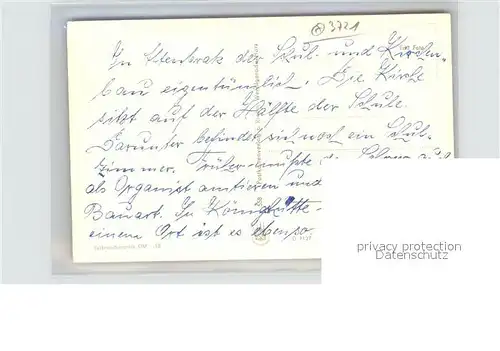 3721
In Altenbrak der Schul- und Kirchen-
bau eigentümlich. Die Kirche
sitzt auf der Hälfte der Schule.
Darunter befindet sich noch ein Schul-
zimmer. Früher mußte der Lehrer auch
als Organist amtieren und
Bauart. In Königshütte -
einem Ort ist es ebenso.
privacy protection
Datenschutz